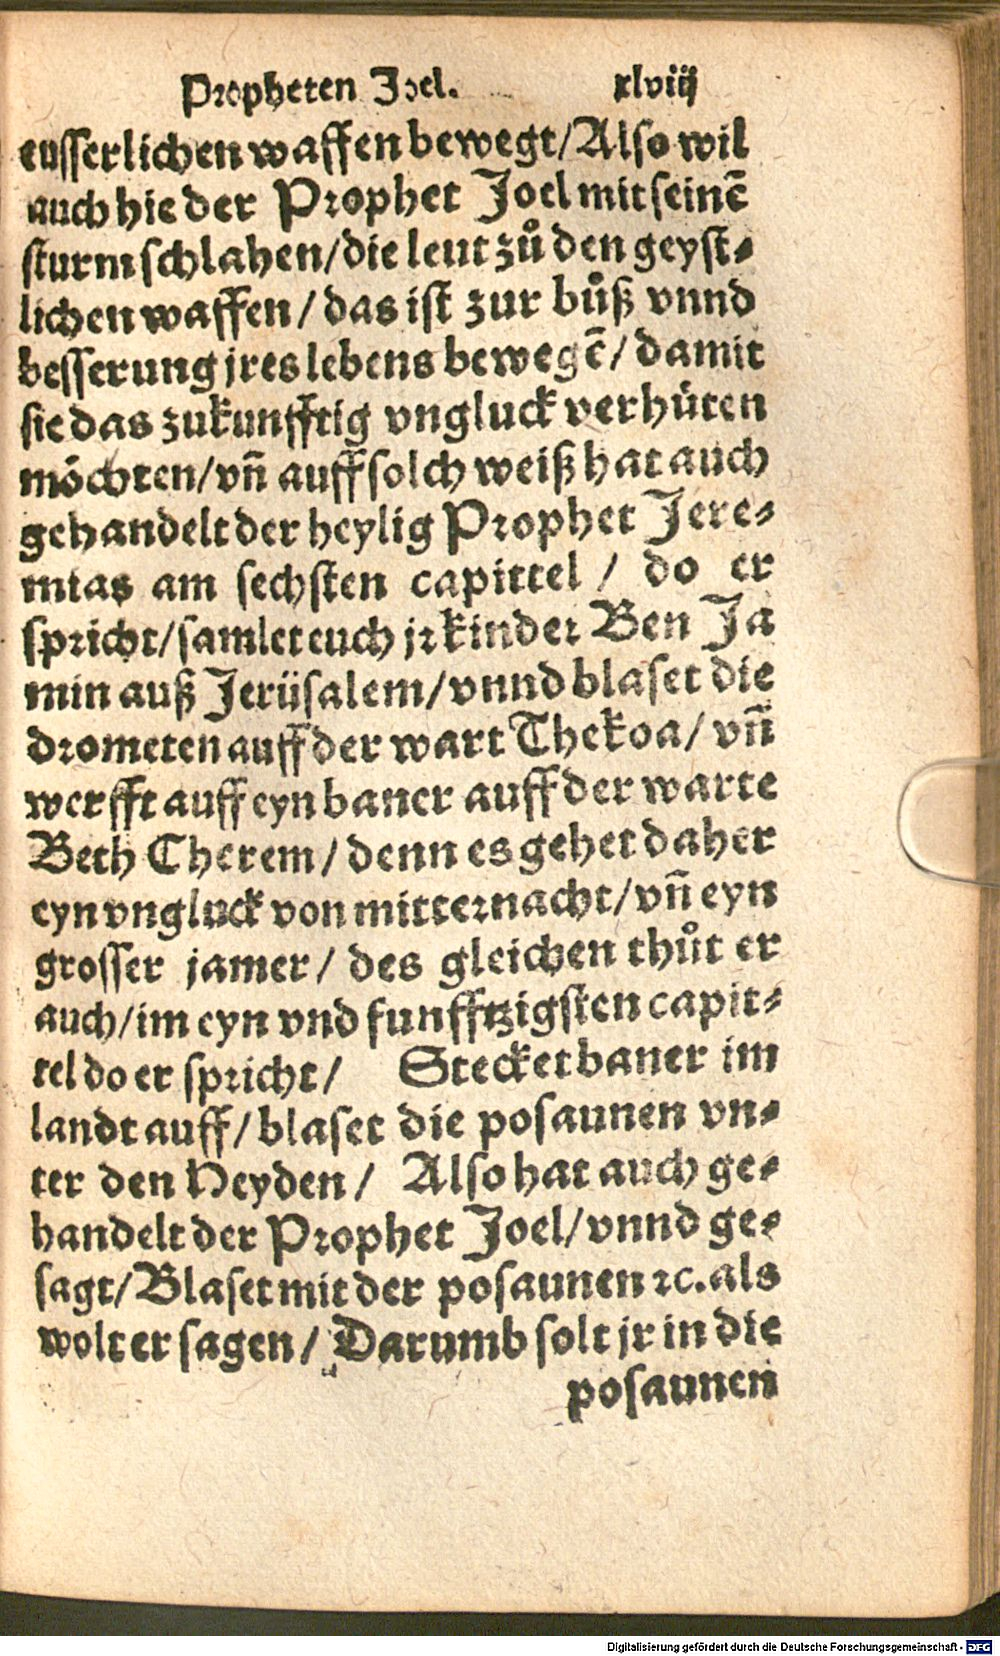 Propheten Joel. xlviij
eusserlichen waffen bewegt/Also wil
auch hie der Prophet Joel mit seinē
sturm schlahen/die leut zů den geyst⸗
lichen waffen/das ist zur bůß vnnd
besserung jres lebens bewegē/damit
sie das zukunfftig vngluck verhüten
möchten/vñ auff solch weiß hat auch
gehandelt der heylig Prophet Jere⸗
mias am sechsten capittel / do er
spricht/samlet euch jr kinder Ben Ja
min auß Jerüsalem/vnnd blaset die
drometen auff der wart Thekoa/vñ
werfft auff eyn baner auff der warte
Beth Cherem/denn es gehet daher
eyn vngluck von mitternacht/vñ eyn
grosser jamer/ des gleichen thůt er
auch/im eyn vnd funfftzigsten capit⸗
tel do er spricht/ Stecket baner im
landt auff/blaset die posaunen vn⸗
ter den Heyden/ Also hat auch ge⸗
handelt der Prophet Joel/vnnd ge⸗
sagt/Blaset mit der posaunen ꝛc. als
wolt er sagen/ Darumb solt jr in die
posaunen
Digitalisierung gefördert durch die Deutsche Forschungsgemeinschaft - DFG